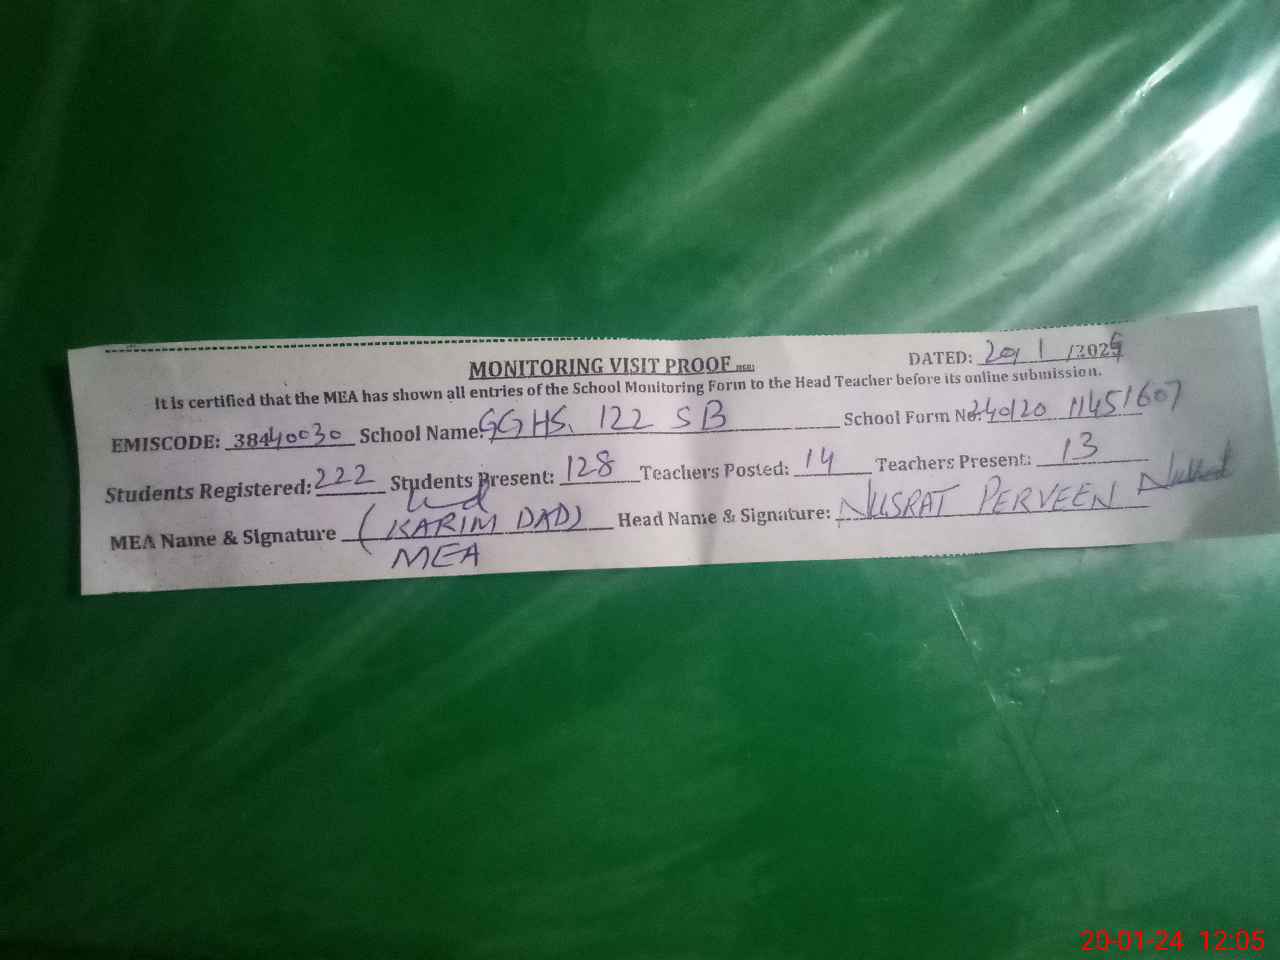 MONITORING VISIT PROOF
DATED: 20/1/2024
It is certified that the MEA has shown all entries of the School Monitoring Form to the Head Teacher before its online submission.
EMISCODE: 38440030 School Name: GGHS, 122 SB School Form No. 240120 11451607
Students Registered: 222 Students Present: 128 Teachers Posted: 14 Teachers Present: 13
MEA Name & Signature (KARIM DAD) Head Name & Signature: NUSRAT PERVEEN
MEA
20-01-24 12:05